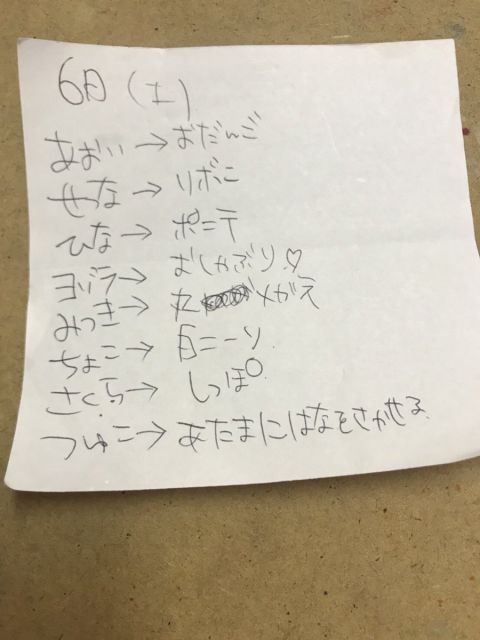 6日(土)
あおい→おだんご
せつな→リボン
ひな→ポニテ
ヨゾラ→おしゃぶり♡
みつき→丸メガネ
ちょこ→白ニーソ
さくら→しっぽ
つゆこ→あたまにはなをさかせる